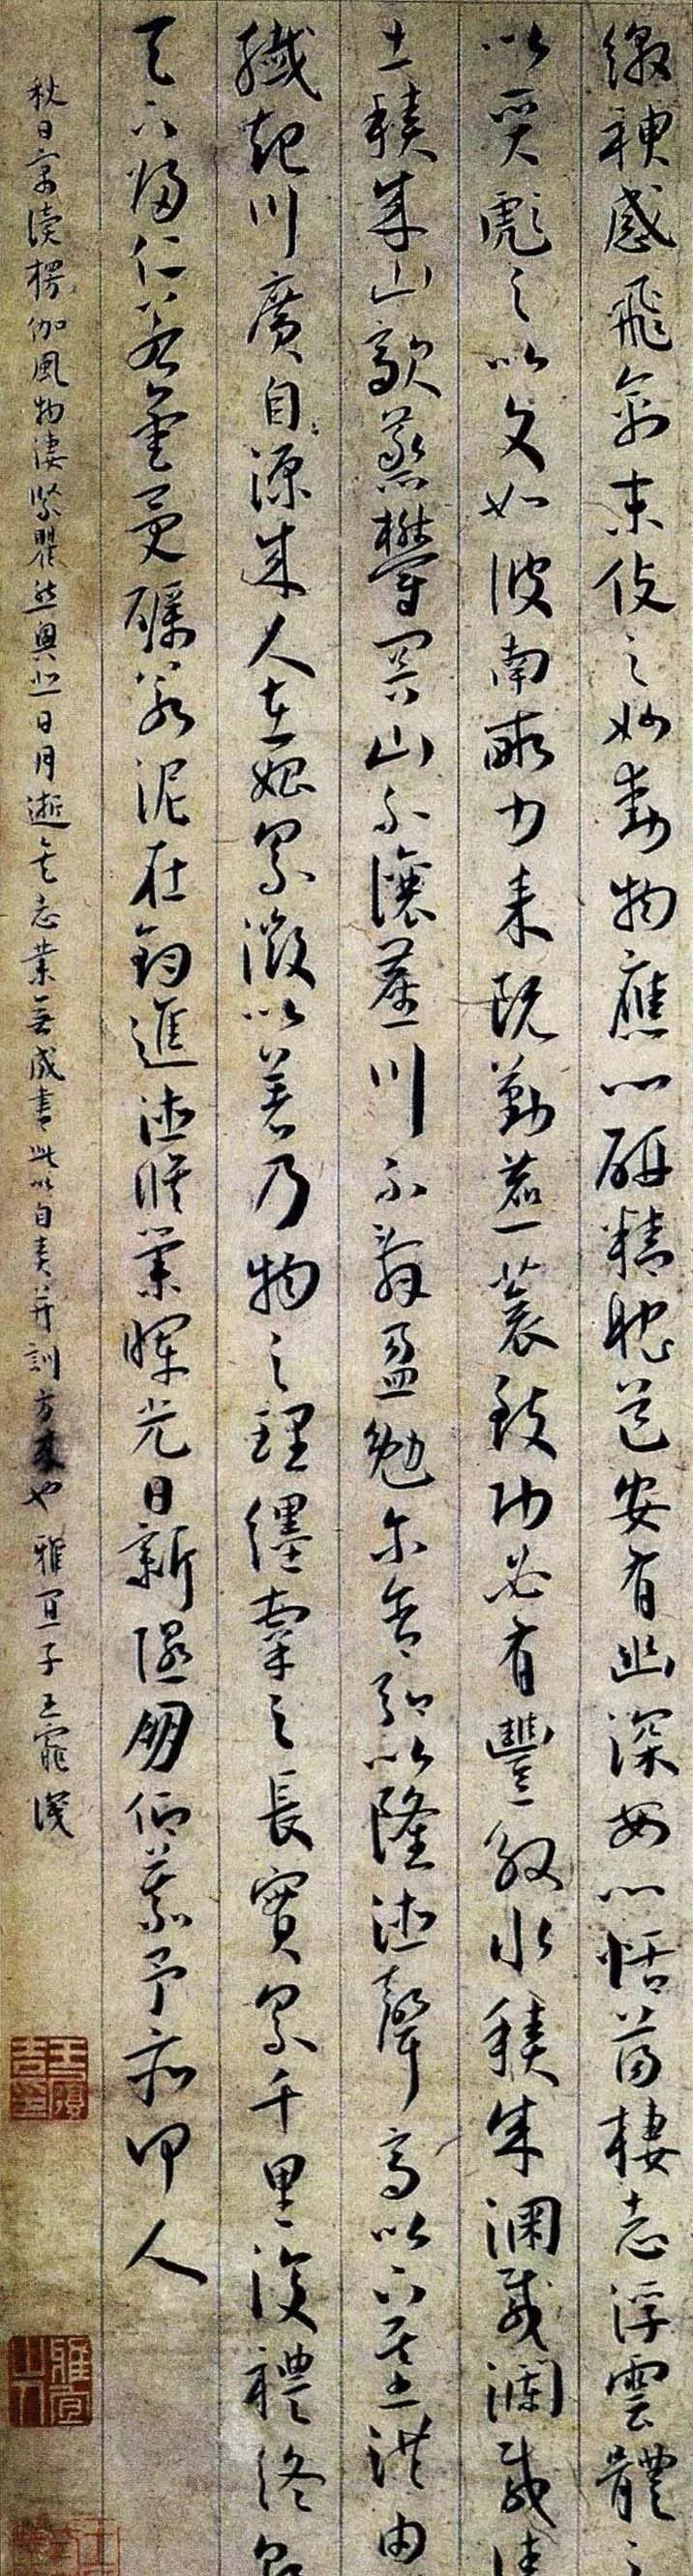 繳神感飛禽末伎之妙動物應心研精耽道安有幽深安心恬蕩棲志浮雲體之
以質彪之以文如彼南畝力耒既勤藨蓘致功必有豐殷水積成淵載瀾載清
土積成山歊蒸鬱冥山不讓塵川不辭盈勉爾含弘以隆德聲高以下基洪由
纖起川廣自源成人在始累微以著乃物之理纆牽之長實累千里復禮終朝
天下歸仁若金受礪若泥在鈞進德脩業暉光日新隰朋仰慕予亦何人
秋日寓讀楞伽風物淒緊瞿然興悲日月逝矣志業無成書此以自責并訓方來也雅宜子王寵識
王履吉印
雅宜山人